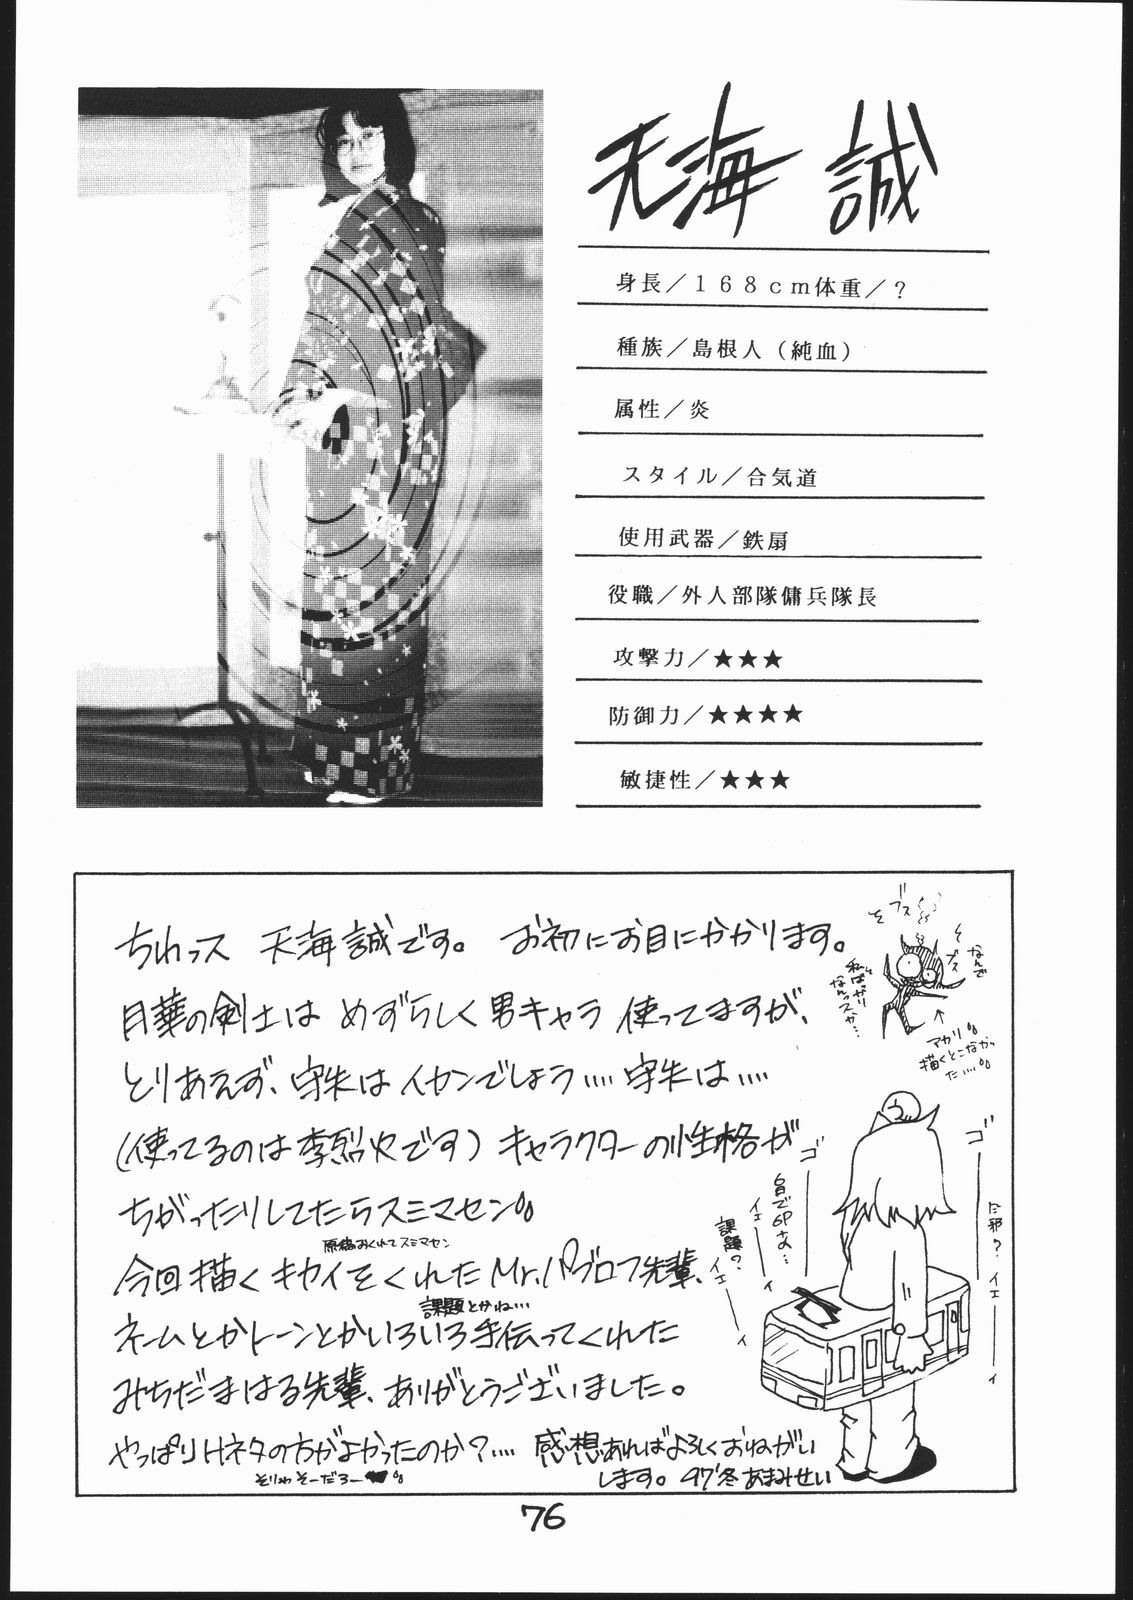 天海 誠
身長／１６８ｃｍ体重／？
種族／島根人（純血）
属性／炎
スタイル／合気道
使用武器／鉄扇
役職／外人部隊傭兵隊長
攻撃力／★★★
防御力／★★★★
敏捷性／★★★
ちわっス 天海誠です。 お初にお目にかかります。
月華の剣士は めずらしく男キャラ 使ってますが、
とりあえず、守矢は イカンでしょう‥‥ 守矢は‥‥
(使ってるのは李烈火です) キャラクターの性格が
ちがったりしてたらスミマセン。
原稿おくれてスミマセン
今回描くキカイをくれたMr.パブロフ先輩、
課題とかね…
ネームとかトーンとかいろいろ手伝ってくれた
みちだまはる先輩、ありがとうございました。
やっぱりHネタの方がよかったのか？‥‥ 感想あればよろしくおねがい
そりゃそーだろー
します。 97'冬 あまみせい
ブス
ブス
なんで
私ばっかり
なんっスか…
アカリ
描くとこなかっ
た‥‥
ゴ
ゴ
イェ
イ
課題？
イェ
イ
イェ
イ
76